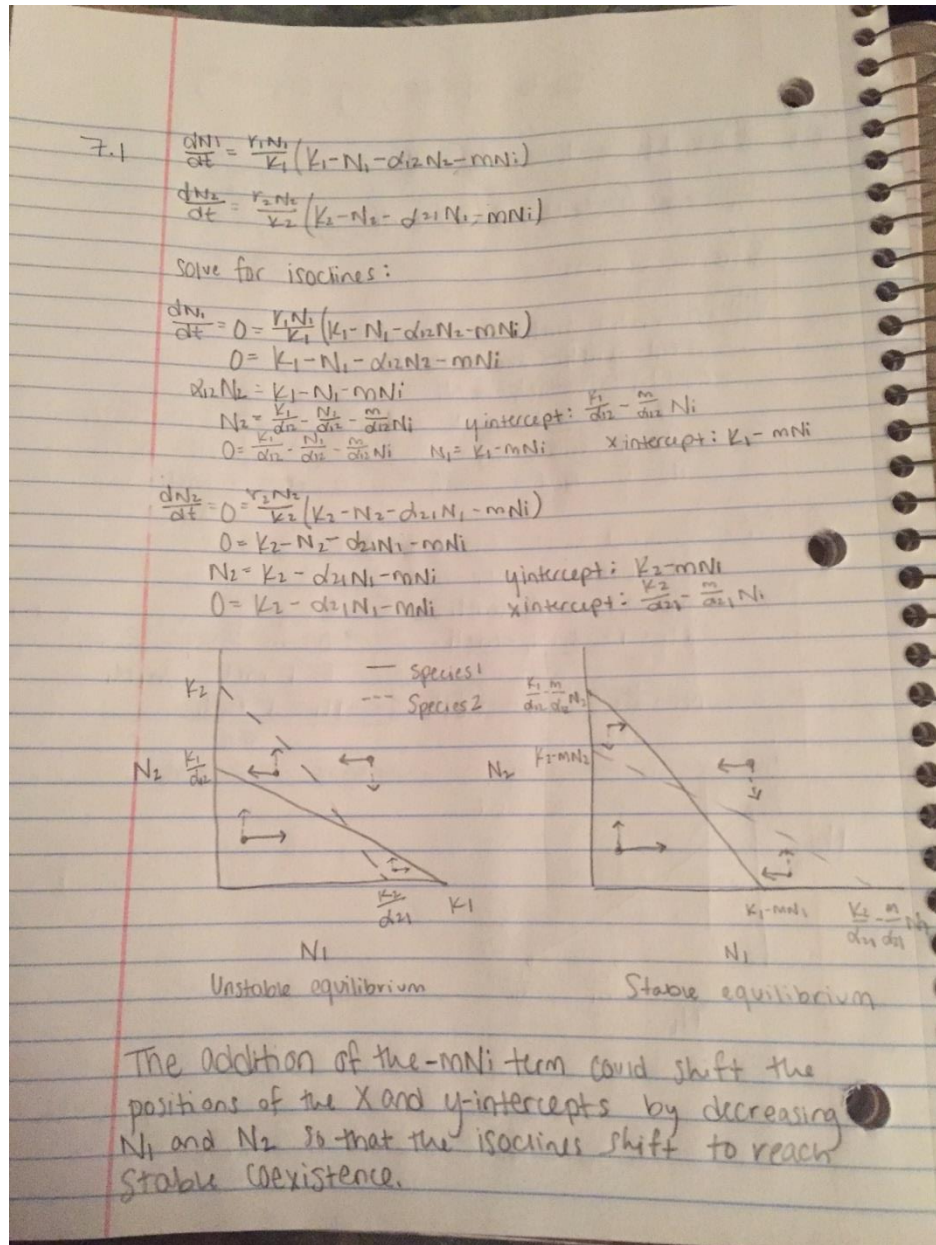 7.1 dN1/dt = r1N1/K1 (K1-N1-α12N2-mNi)
dN2/dt = r2N2/K2 (K2-N2-α21N1-mNi)
solve for isoclines:
dN1/dt = 0 = r1N1/K1 (K1-N1-α12N2-mNi)
0 = K1-N1-α12N2-mNi
α12N2 = K1-N1-mNi
N2 = K1/α12 - N1/α12 - m/α12 Ni y intercept: K1/α12 - m/α12 Ni
0 = K1/α12 - N1/α12 - m/α12 Ni N1 = K1-mNi x intercept: K1-mNi
dN2/dt = 0 = r2N2/K2 (K2-N2-α21N1-mNi)
0 = K2-N2-α21N1-mNi
N2 = K2-α21N1-mNi y intercept: K2-mNi
0 = K2-α21N1-mNi x intercept: K2/α21 - m/α21 Ni
— Species 1
--- Species 2
K2
N2 K1/α12
K2/α21 K1
N1
Unstable equilibrium
K1/α12 - m/α12 N2
N2 K2-mN2
K1-mN1 K2/α21 - m/α21
N1
Stable equilibrium
The addition of the -mNi term could shift the
positions of the X and y-intercepts by decreasing
N1 and N2 so that the isoclines shift to reach
stable coexistence.